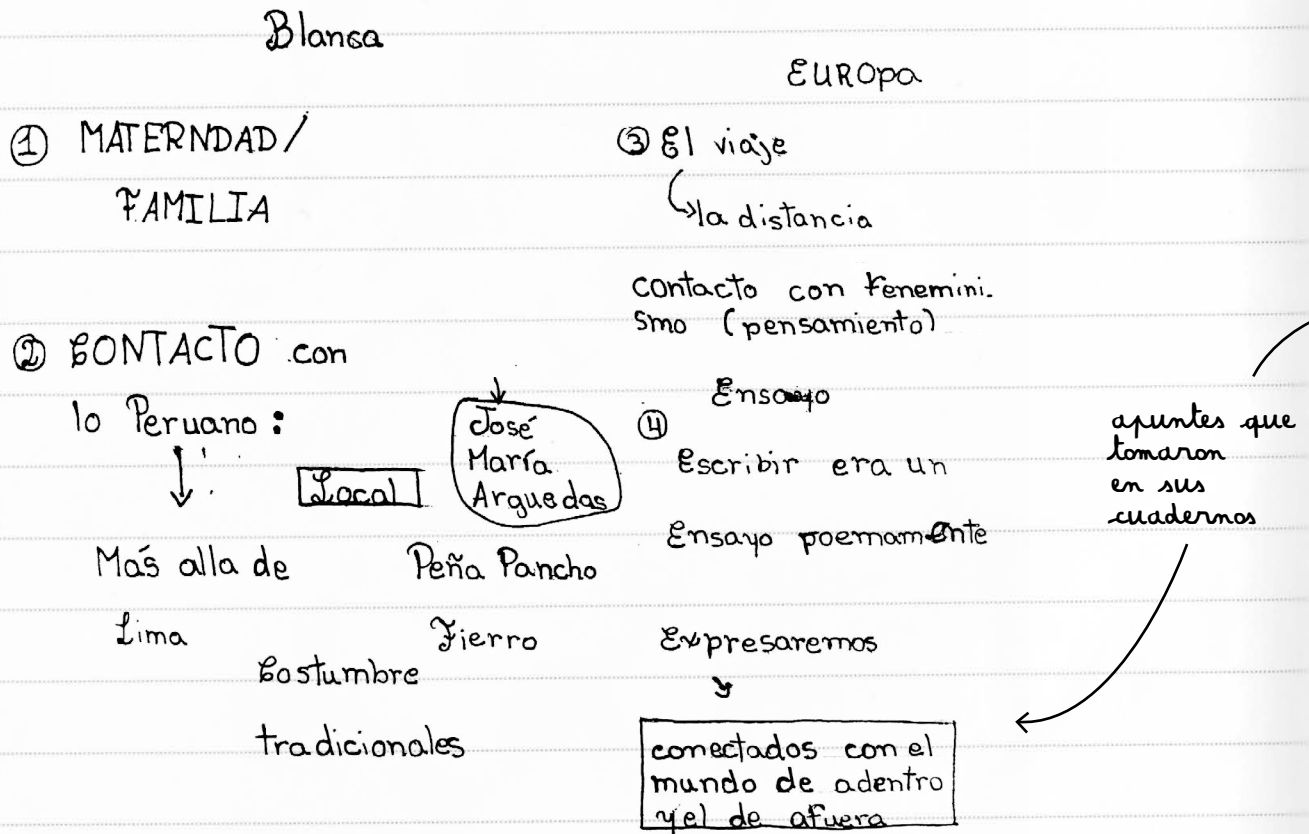 Blanca
① MATERNDAD/
FAMILIA
② CONTACTO con
lo Peruano:
Local
José
María
Arguedas
Más alla de
Lima
Peña Pancho
Fierro
Costumbre
tradicionales
EUROpa
③ El viaje
la distancia
contacto con Fenemini-
smo (pensamiento)
Ensayo
④
Escribir era un
Ensayo poemamente
Expresaremos
conectados con el
mundo de adentro
y el de afuera
apuntes que
tomaron
en sus
cuadernos